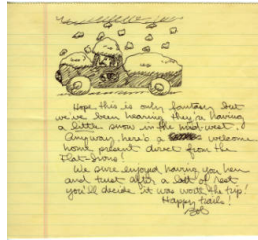 Hope this is only fantasy but
we've been hearing they're having
a little snow in the mid-west.
Anyway, here's a welcome
home present direct from the
Flat-Irons!
We sure enjoyed having you here
and trust after a lot of rest
you'll decide it was worth the trip!
Happy trails!
Bob